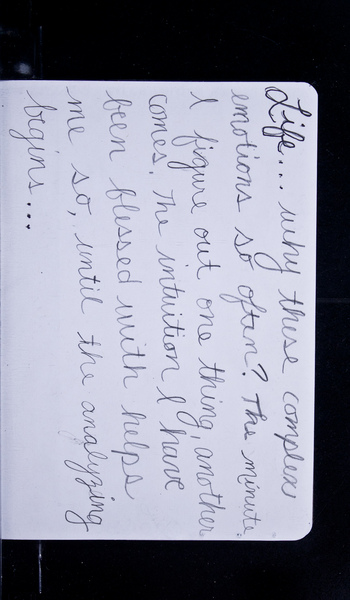 Life... why these complex
emotions so often? The minute
I figure out one thing, another
comes. The intuition I have
been blessed with helps
me so, until the analyzing
begins...